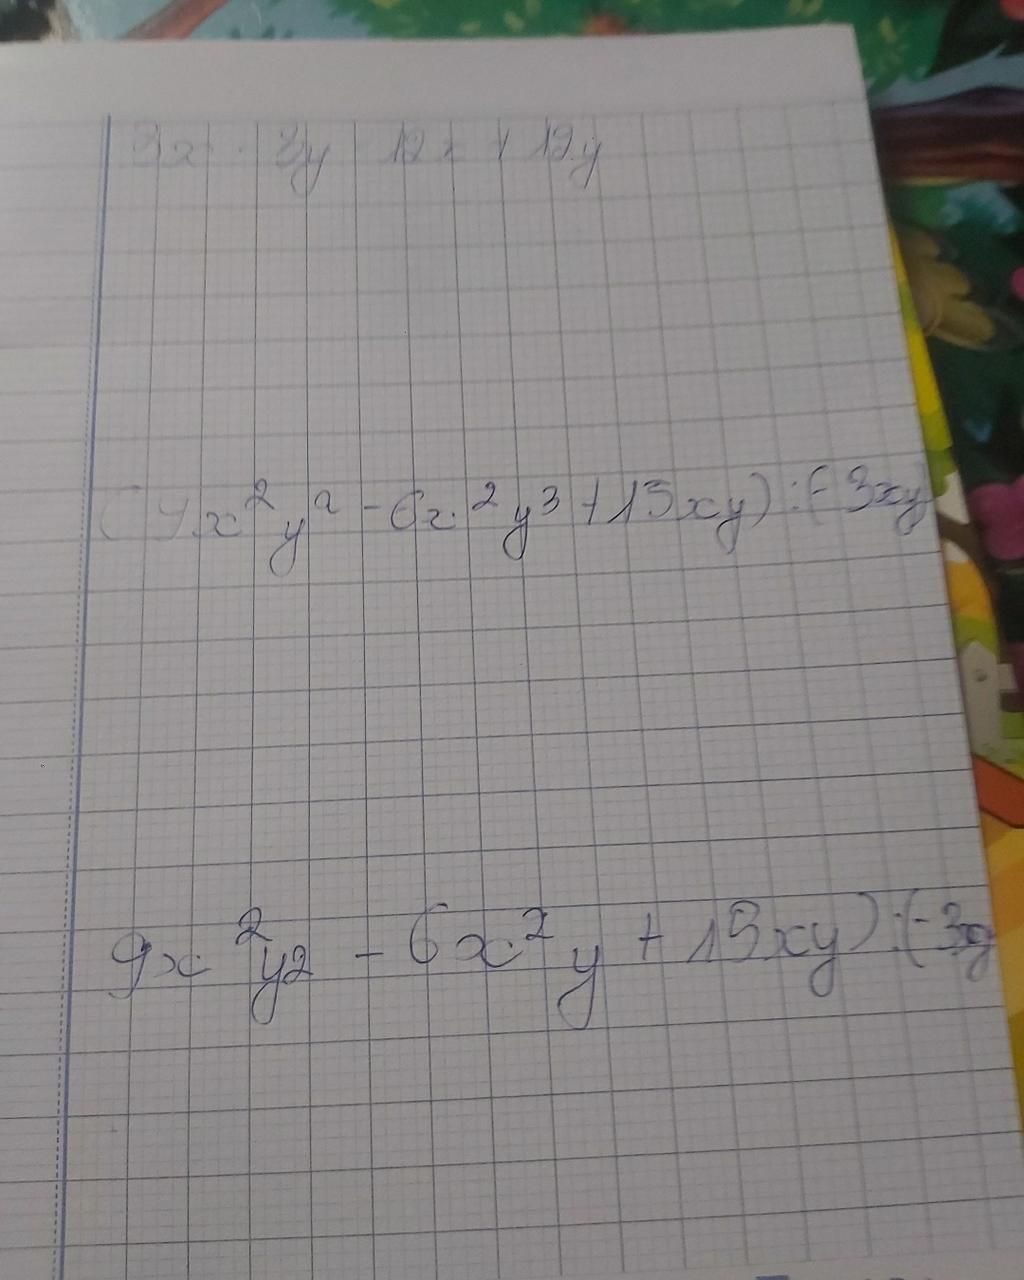 3x 3y 12x + 12y
(9x²y² - 6x²y³ + 15xy) : (-3xy)
9x²y2 - 6x²y + 15xy) : (-3xy